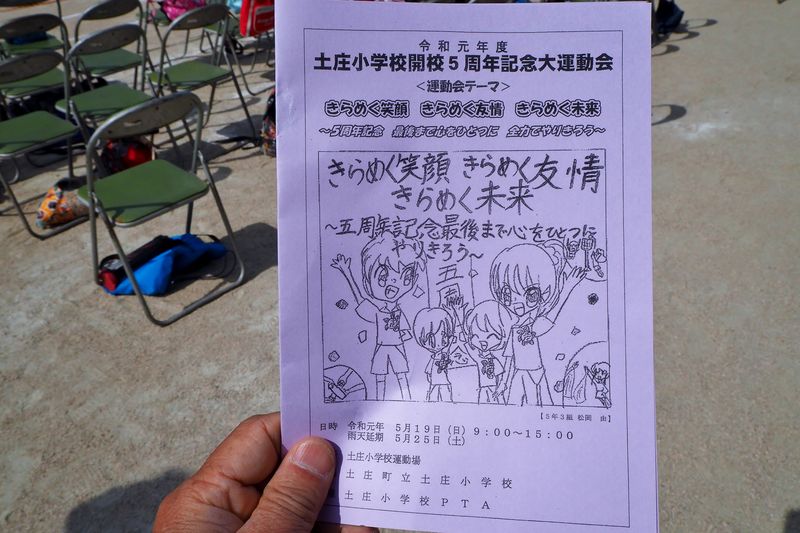 令和元年度
土庄小学校開校5周年記念大運動会
<運動会テーマ>
きらめく笑顔 きらめく友情 きらめく未来
～5周年記念 最後まで心をひとつに 全力でやりきろう～
きらめく笑顔 きらめく友情
きらめく未来
～五周年記念最後まで心をひとつに
やりきろう～
五周
【5年3組 松岡 由】
日時 令和元年 5月19日(日)9:00～15:00
雨天延期 5月25日(土)
土庄小学校運動場
土庄町立土庄小学校
土庄小学校PTA